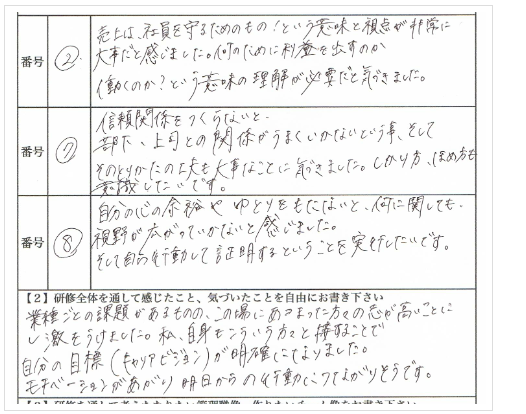 番号 ② 売上は、社員を守るためのもの！という意味と視点が非常に
大事だと感じました。何のために利益を出すのか
働くのか？という意味の理解が必要だと気づきました。
番号 ⑦ 信頼関係をつくらないと、
部下、上司との関係がうまくいかないという事、そして
そのとりかたの工夫も大事なことに気づきました。しかり方、ほめ方も
意識したいです。
番号 ⑧ 自分の心の余裕やゆとりをもたないと、何に関しても、
視野が広がっていかないと感じました。
そして自ら行動して証明するということを実行したいです。
【2】研修全体を通して感じたこと、気づいたことを自由にお書き下さい
業種ごとの課題があるものの、この場にあつまった方々の志が高いことに
し激をうけました。私、自身もこういう方々と接することで
自分の目標（キャリアビジョン）が明確になりました。
モチベーションがあがり明日からの行動につながりそうです。